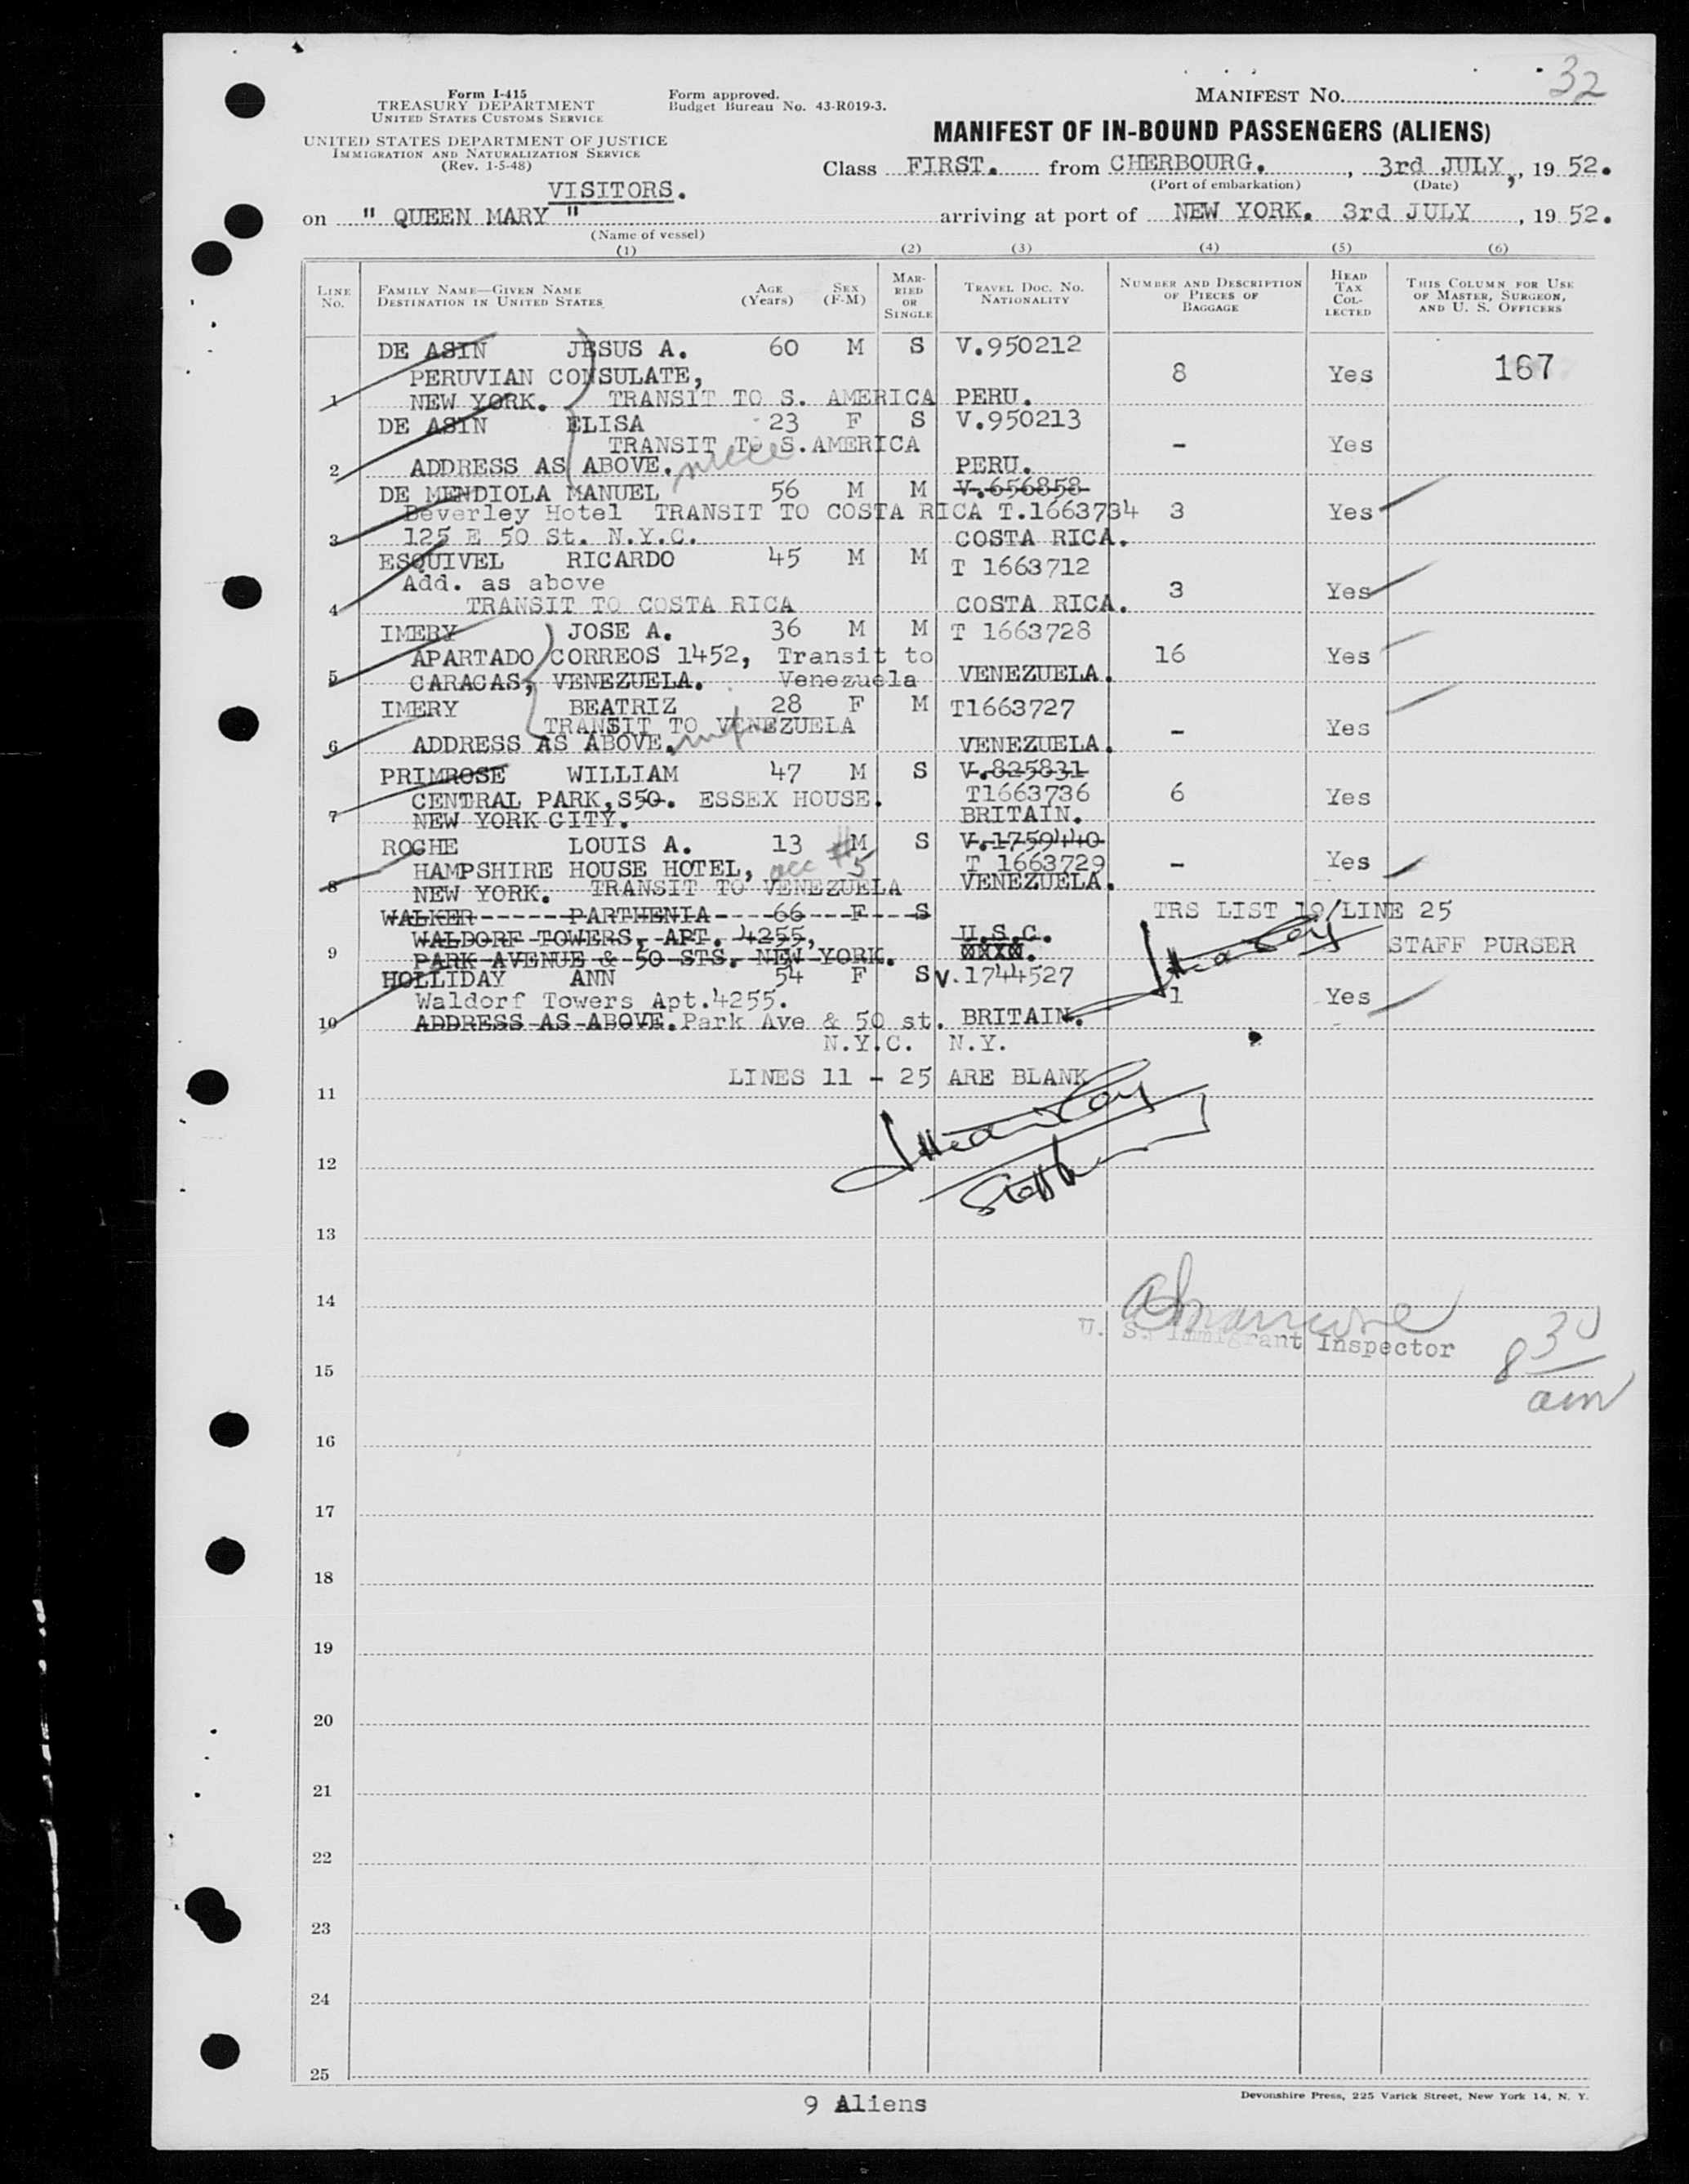 32
Form I-415
TREASURY DEPARTMENT
UNITED STATES CUSTOMS SERVICE
UNITED STATES DEPARTMENT OF JUSTICE
IMMIGRATION AND NATURALIZATION SERVICE
(Rev. 1-5-48)
Form approved.
Budget Bureau No. 43-R019-3.
MANIFEST NO.
MANIFEST OF IN-BOUND PASSENGERS (ALIENS)
Class FIRST. from CHERBOURG. , 3rd JULY, , 19 52.
(Port of embarkation) (Date)
VISITORS.
on " QUEEN MARY " arriving at port of NEW YORK. 3rd JULY , 19 52.
(Name of vessel)
(1) (2) (3) (4) (5) (6)
LINE No. FAMILY NAME—GIVEN NAME DESTINATION IN UNITED STATES AGE (Years) SEX (F-M) MARRIED OR SINGLE TRAVEL DOC. NO. NATIONALITY NUMBER AND DESCRIPTION OF PIECES OF BAGGAGE HEAD TAX COLLECTED THIS COLUMN FOR USE OF MASTER, SURGEON, AND U. S. OFFICERS
DE ASIN JESUS A. 60 M S V.950212
PERUVIAN CONSULATE, 8 Yes 167
1 NEW YORK. TRANSIT TO S. AMERICA PERU.
DE ASIN ELISA 23 F S V.950213
TRANSIT TO S.AMERICA - Yes
2 ADDRESS AS ABOVE. niece PERU.
DE MENDIOLA MANUEL 56 M M V.656858
Beverley Hotel TRANSIT TO COSTA RICA T.1663734 3 Yes
3 125 E 50 St. N.Y.C. COSTA RICA.
ESQUIVEL RICARDO 45 M M T 1663712
Add. as above 3 Yes
4 TRANSIT TO COSTA RICA COSTA RICA.
IMERY JOSE A. 36 M M T 1663728
APARTADO CORREOS 1452, Transit to 16 Yes
5 CARACAS, VENEZUELA. Venezuela VENEZUELA.
IMERY BEATRIZ 28 F M T1663727
TRANSIT TO VENEZUELA - Yes
6 ADDRESS AS ABOVE. VENEZUELA.
PRIMROSE WILLIAM 47 M S V.825831
CENTRAL PARK,S50. ESSEX HOUSE. T1663736 6 Yes
7 NEW YORK CITY. BRITAIN.
ROCHE LOUIS A. 13 M S V.1759440
HAMPSHIRE HOUSE HOTEL, acc #5 T 1663729 - Yes
8 NEW YORK. TRANSIT TO VENEZUELA VENEZUELA.
WALKER PARTHENIA 66 F S TRS LIST 19/LINE 25
WALDORF TOWERS, APT. 4255, U.S.C.
9 PARK AVENUE & 50 STS. NEW YORK. STAFF PURSER
HOLLIDAY ANN 54 F S V.1744527
Waldorf Towers Apt.4255. 1 Yes
10 ADDRESS AS ABOVE. Park Ave & 50 st. BRITAIN.
N.Y.C. N.Y.
LINES 11 - 25 ARE BLANK
11
12
13
14
U. S. Immigrant Inspector
8 30
am
15
16
17
18
19
20
21
22
23
24
25
9 Aliens
Devonshire Press, 225 Varick Street, New York 14, N. Y.